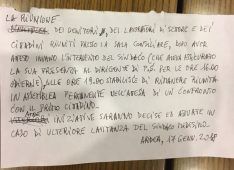 LA RIUNIONE
DEI GENITORI, DEI LAVORATORI DI SETTORE E DEI
CITTADINI RIUNITI PRESSO LA SALA CONSILIARE, DOPO AVER
ATTESO INVANO L'INTERVENTO DEL SINDACO (CHE AVEVA ASSICURATO
LA SUA PRESENZA AL DIRIGENTE DI P.S. PER LE ORE 16.00
ODIERNE), ALLE ORE 19.00 STABILISCE DI RIMANERE RIUNITA
IN ASSEMBLEA PERMANENTE NELL'ATTESA DI UN CONFRONTO
CON IL PRIMO CITTADINO.
INIZIATIVE SARANNO DECISE ED ATTUATE IN
CASO DI ULTERIORE LATITANZA DEL SINDACO MEDESIMO.
ARDEA, 17 GENN. 2018